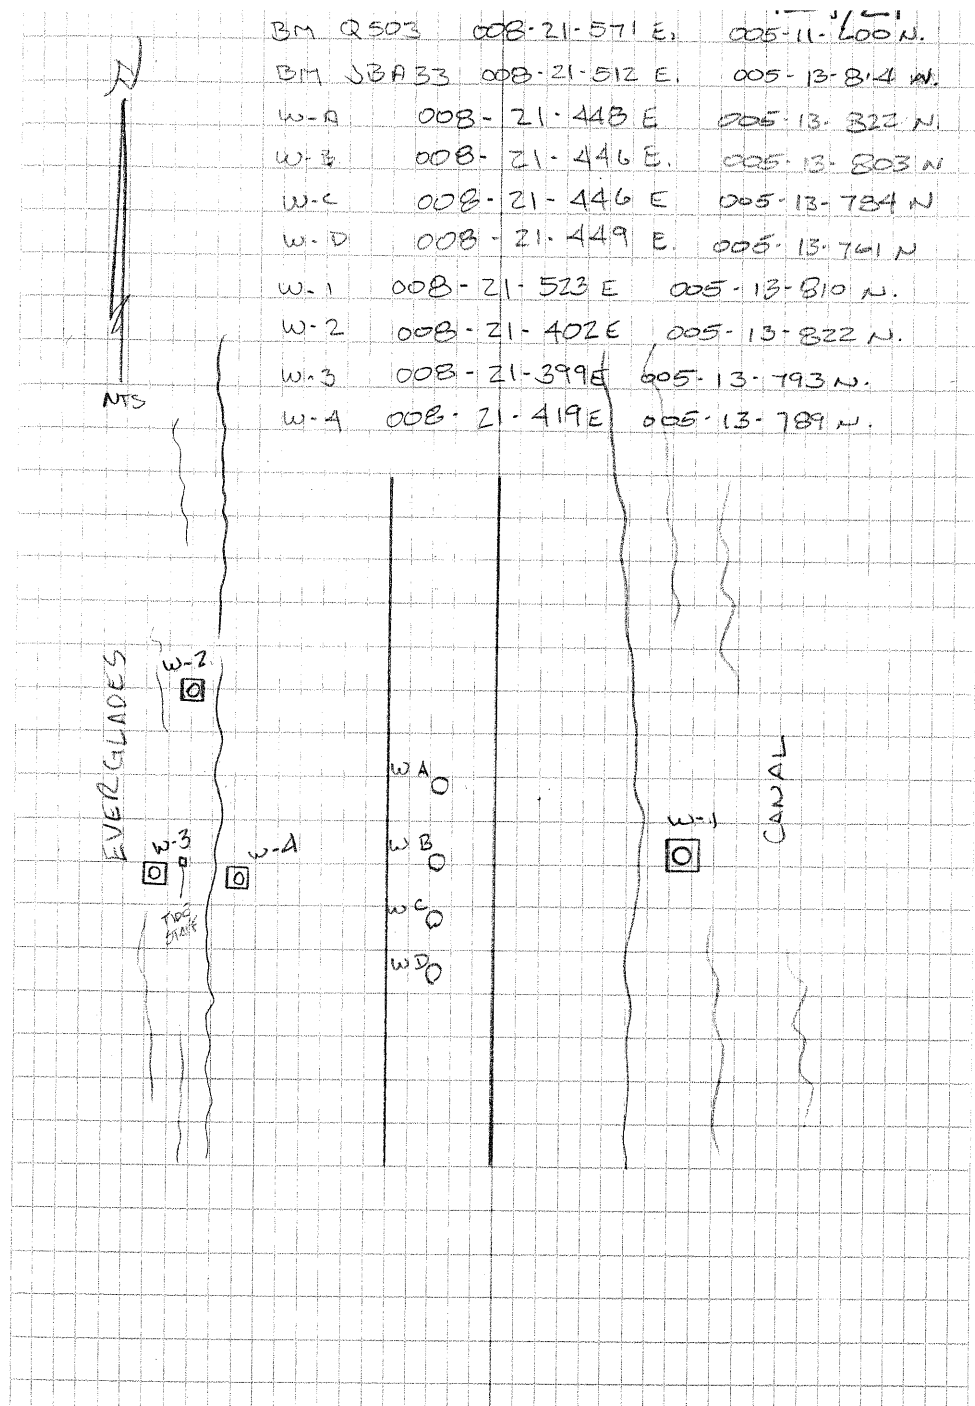 BM Q503 008-21-571 E. 005-11-600 N.
BM JBA33 008-21-512 E. 005-13-814 N.
W-A 008-21-448 E 005-13-822 N.
W-B 008-21-446 E. 005-13-803 N
W-C 008-21-446 E 005-13-784 N
W-D 008-21-449 E. 005-13-761 N
W-1 008-21-523 E 005-13-810 N.
W-2 008-21-402 E 005-13-822 N.
W-3 008-21-399 E 005-13-793 N.
W-4 008-21-419 E 005-13-789 N.
N
NTS
EVERGLADES
W-2
W A
CANAL
W-1
W B
W-3
W-4
TIDE
STAFF
W C
W D